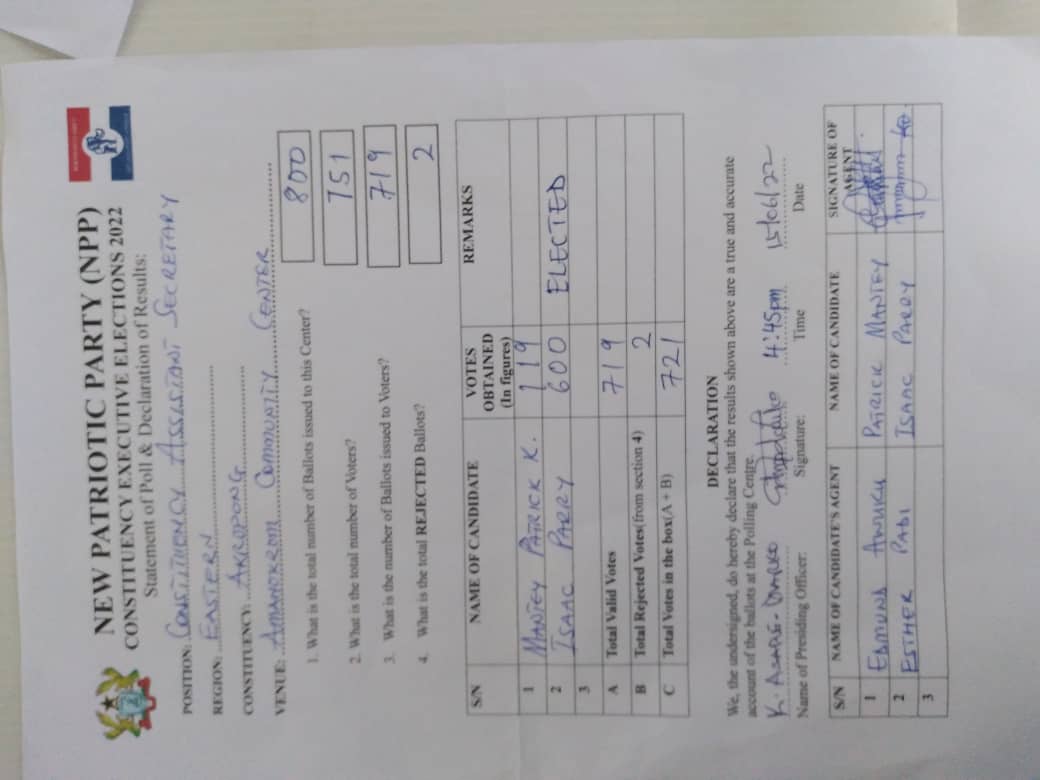 NEW PATRIOTIC PARTY (NPP)
CONSTITUENCY EXECUTIVE ELECTIONS 2022
Statement of Poll & Declaration of Results:
POSITION: CONSTITUENCY ASSISTANT SECRETARY
REGION: EASTERN
CONSTITUENCY: AKROPONG
VENUE: AMANOKROM COMMUNITY CENTER
1. What is the total number of Ballots issued to this Center? 800
2. What is the total number of Voters? 751
3. What is the number of Ballots issued to Voters? 719
4. What is the total REJECTED Ballots? 2
S/N NAME OF CANDIDATE VOTES OBTAINED (In figures) REMARKS
1 MANTEY PATRICK K. 119
2 ISAAC PARRY 600 ELECTED
3
A Total Valid Votes 719
B Total Rejected Votes(from section 4) 2
C Total Votes in the box(A + B) 721
DECLARATION
We, the undersigned, do hereby declare that the results shown above are a true and accurate
account of the ballots at the Polling Centre.
K. ASARE-DARKO 4:45pm 15/06/22
Name of Presiding Officer: Signature: Time Date
S/N NAME OF CANDIDATE'S AGENT NAME OF CANDIDATE SIGNATURE OF AGENT
1 EDMUND AWUKU PATRICK MANTEY
2 ESTHER PABI ISAAC PARRY
3